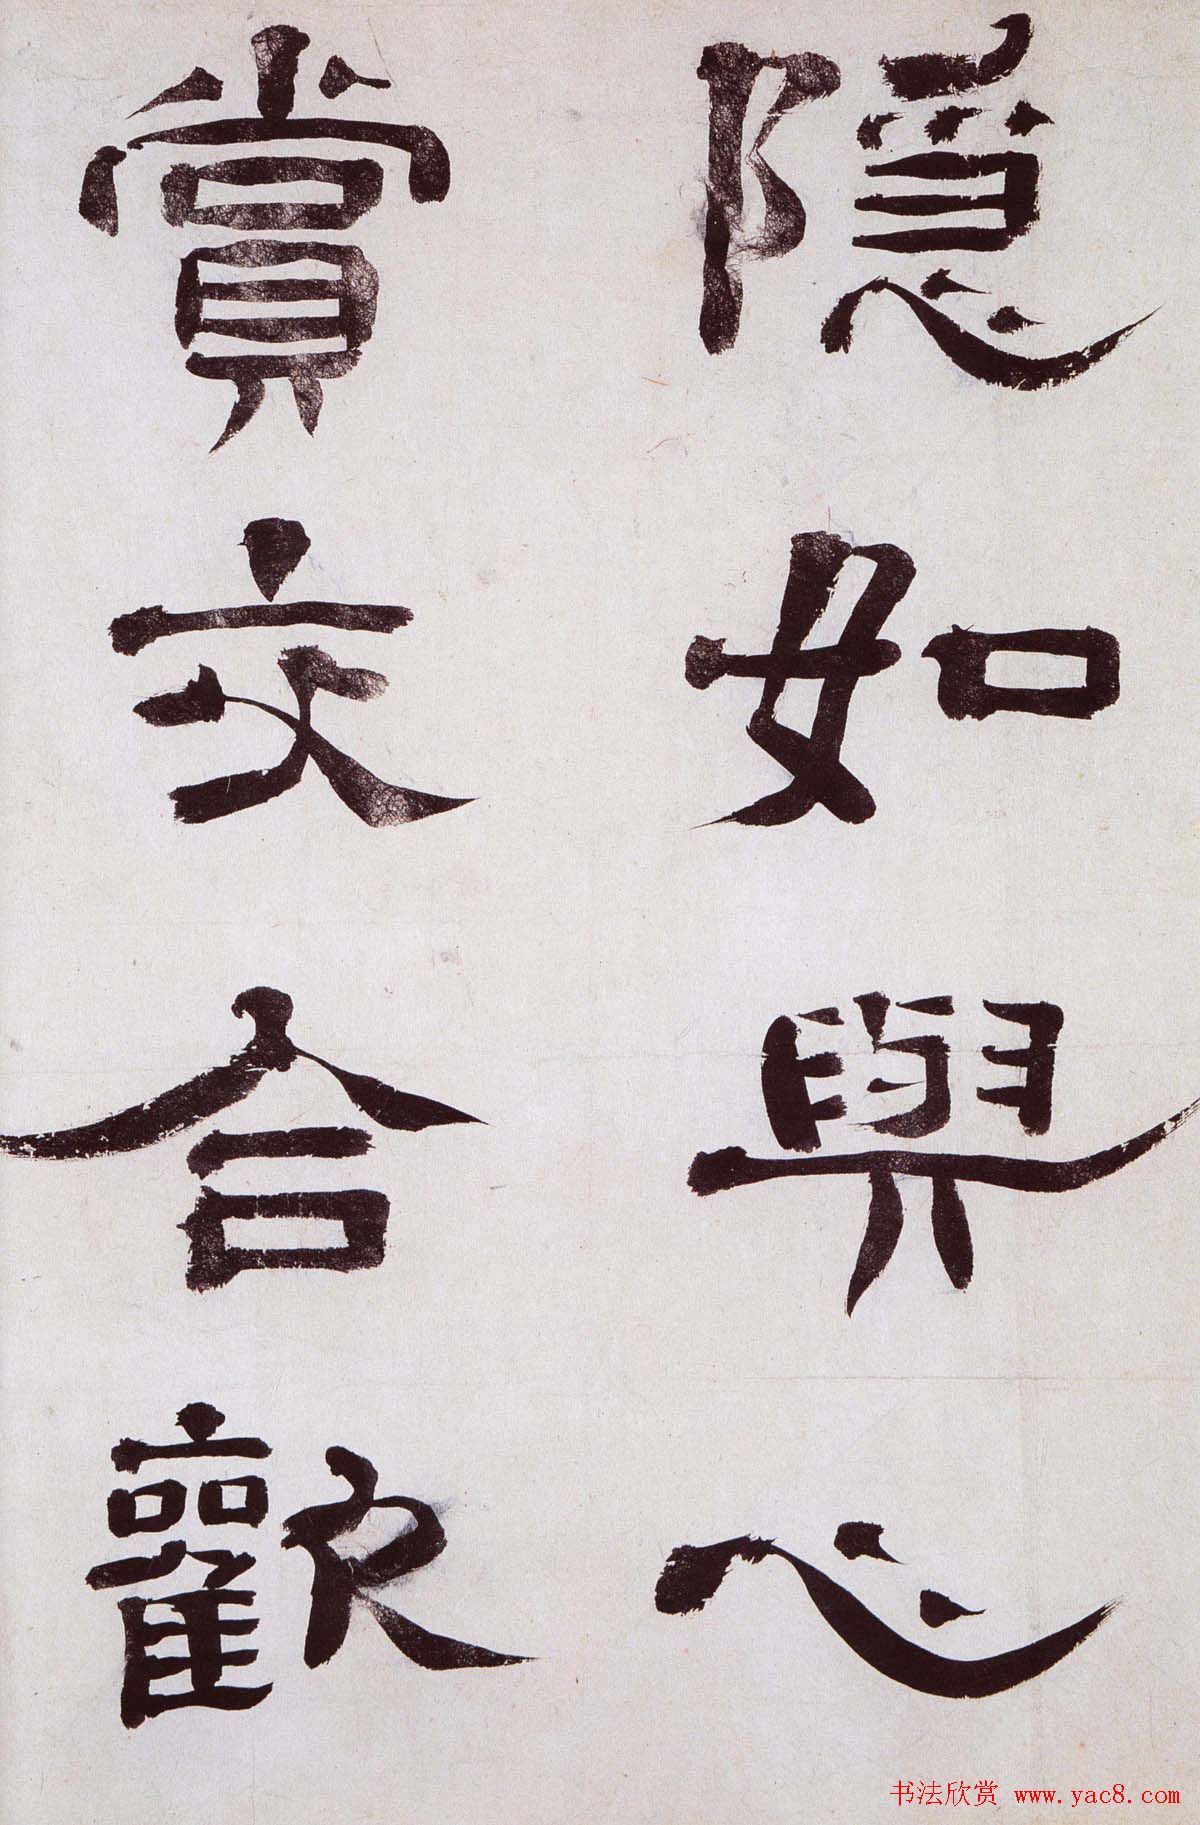 隱如與心
賞交合歡
书法欣赏 www.yac8.com